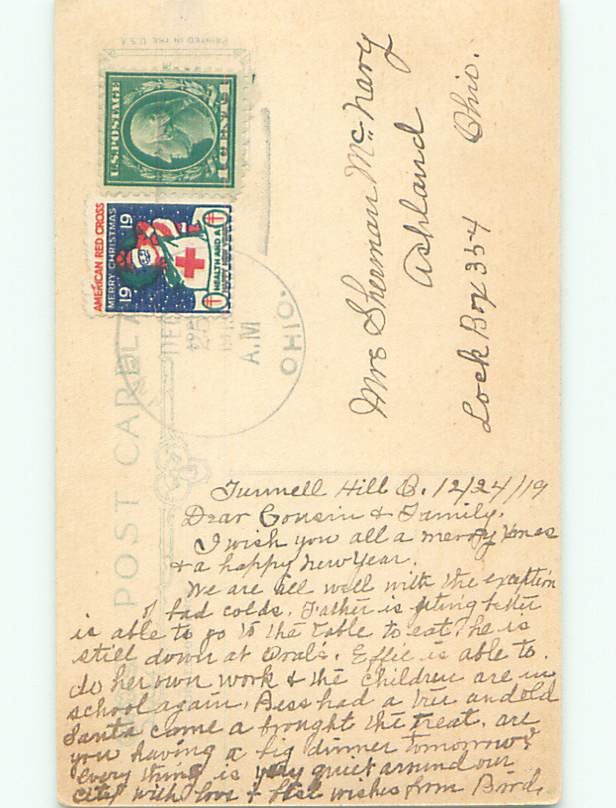 PRINTED IN THE U.S.A.
U.S. POSTAGE
CENTS
AMERICAN RED CROSS
MERRY CHRISTMAS
19 19
HEALTH AND A
HAPPY NEW YEAR
DEC
A.M
OHIO.
POST CARD
Mrs Sherman McNary
Ashland
Ohio.
Lock Box 354
Tunnell Hill O. 12/24/19
Dear Cousin & Family.
I wish you all a merry Xmas
& a happy New Year.
We are all well with the exception
of bad colds. Father is geting better
is able to go to the table to eat, he is
still down at Oral's. Effie is able to
do her own work & the children are in
school again. Bess had a tree and old
Santa came a brought the treat. are
you having a big dinner tomorrow?
every thing is very quiet around our
city with love & best wishes from Bird.